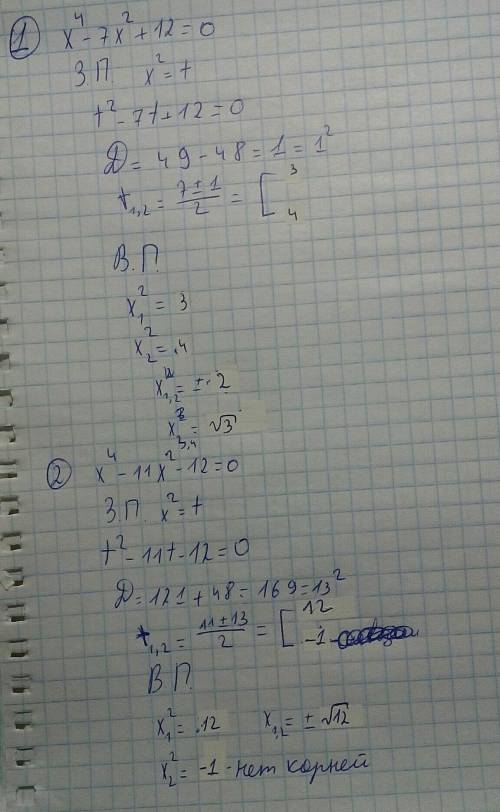 1 x⁴ - 7x² + 12 = 0
З.П. x² = t
t² - 7t + 12 = 0
D = 49 - 48 = 1 = 1²
t₁,₂ = (7 ± 1)/2 = [ 3
4
В.П.
x₁² = 3
x₂² = 4
x₁,₂ = ± 2
x₃,₄ = √3
2 x⁴ - 11x² - 12 = 0
З.П. x² = t
t² - 11t - 12 = 0
D = 121 + 48 = 169 = 13²
t₁,₂ = (11 ± 13)/2 = [ 12
-1
В.П.
x₁² = 12 x₁,₂ = ± √12
x₂² = -1 - нет корней